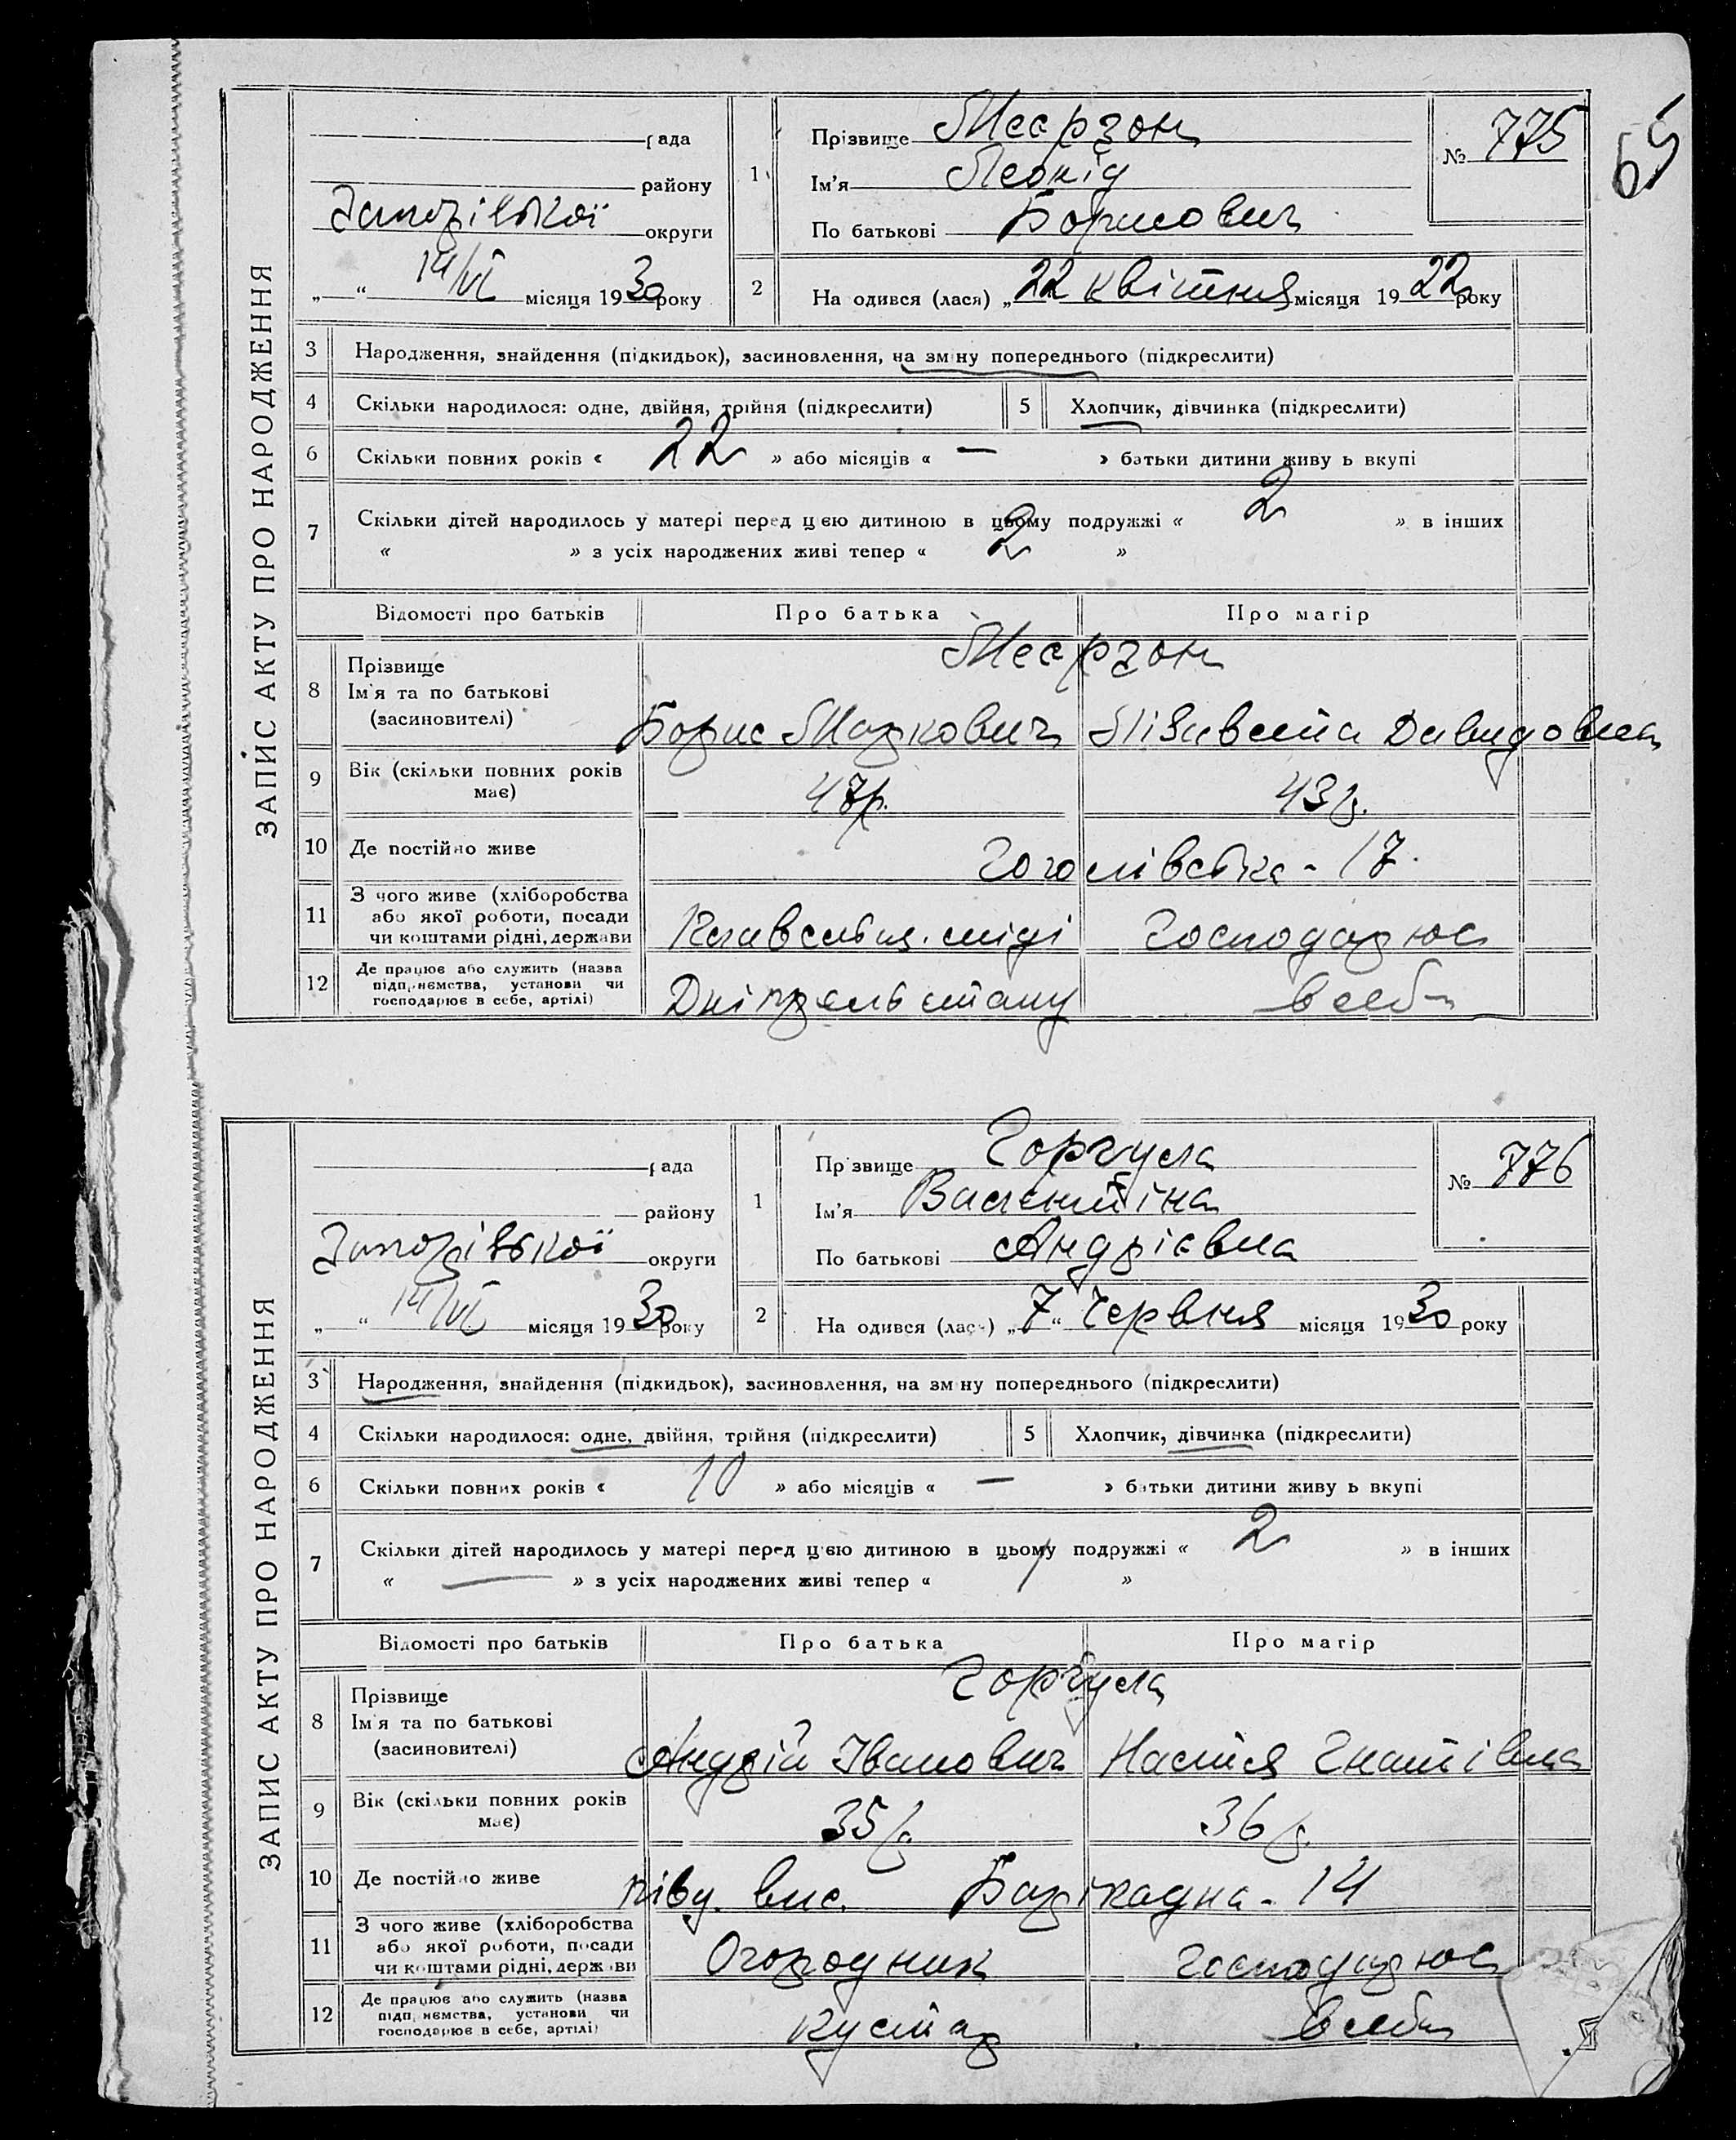 65
ЗАПИС АКТУ ПРО НАРОДЖЕННЯ
рада
району
округи
14/VI місяця 1930 року
1
Прізвище
Ім'я Леонід
По батькові Борисович
№ 775
2
На одився (лася) „22 квітня місяця 1922 року
3 Народження, знайдення (підкидьок), засиновлення, на зміну попереднього (підкреслити)
4 Скільки народилося: одне, двійня, трійня (підкреслити) 5 Хлопчик, дівчинка (підкреслити)
6 Скільки повних років « 22 » або місяців « — » батьки дитини живу ь вкупі
7 Скільки дітей народилось у матері перед цією дитиною в цьому подружжі « 2 » в інших
« » з усіх народжених живі тепер « 2 »
Відомості про батьків Про батька Про матір
8 Прізвище
Ім'я та по батькові
(засиновителі)
Борис Маркович Лізавета Давидовна
9 Вік (скільки повних років має) 47р. 43р.
10 Де постійно живе Гоголівська - 17.
11 З чого живе (хліборобства
або якої роботи, посади
чи коштами рідні, держави
Господарює
12 Де працює або служить (назва
підприємства, установи чи
господарює в себе, артілі)
Дніпрельстану в себе
ЗАПИС АКТУ ПРО НАРОДЖЕННЯ
рада
району
округи
14/VI місяця 1930 року
1
Прізвище Горгула
Ім'я Валентіна
По батькові Андрієвна
№ 776
2
На одився (лася) „7“ Червня місяця 1930 року
3 Народження, знайдення (підкидьок), засиновлення, на зміну попереднього (підкреслити)
4 Скільки народилося: одне, двійня, трійня (підкреслити) 5 Хлопчик, дівчинка (підкреслити)
6 Скільки повних років « 10 » або місяців « — » батьки дитини живу ь вкупі
7 Скільки дітей народилось у матері перед цією дитиною в цьому подружжі « 2 » в інших
« — » з усіх народжених живі тепер « 1 »
Відомості про батьків Про батька Про матір
8 Прізвище
Ім'я та по батькові
(засиновителі)
Горгула
Андрій Іванович Настя Гнатівна
9 Вік (скільки повних років має) 35р. 36р.
10 Де постійно живе півд. вис. Барікадна - 14
11 З чого живе (хліборобства
або якої роботи, посади
чи коштами рідні, держави
Огородник Господарює
12 Де працює або служить (назва
підприємства, установи чи
господарює в себе, артілі)
кустар в себе